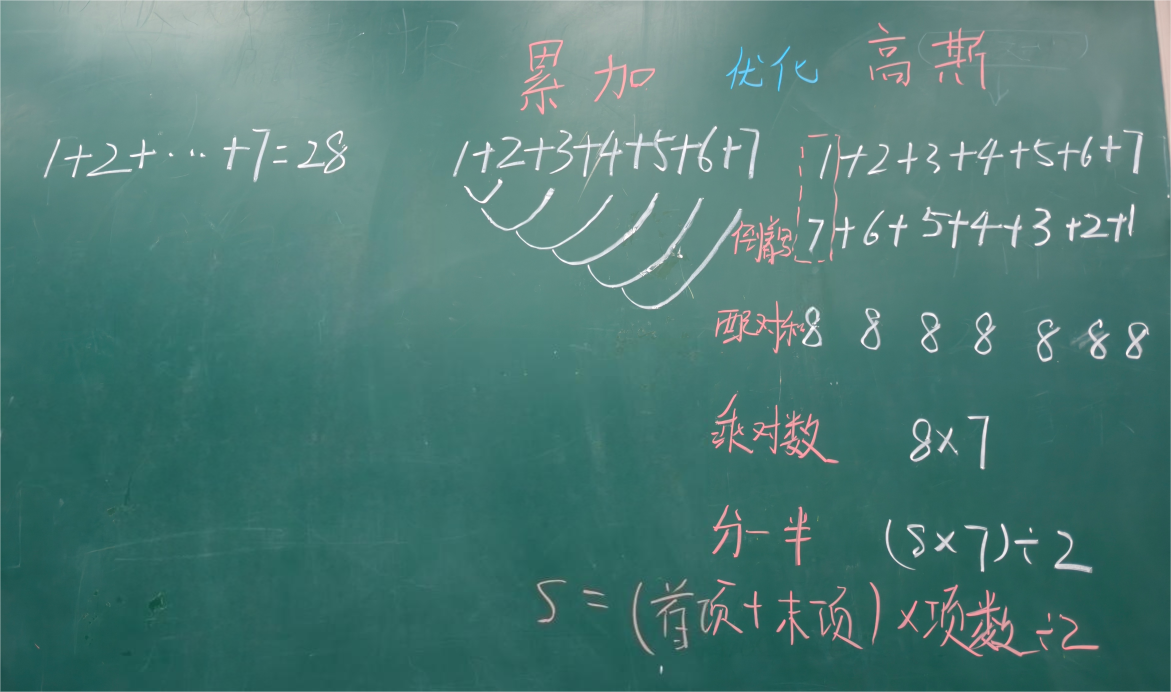 累加 优化 高斯
1+2+…+7=28
1+2+3+4+5+6+7
1+2+3+4+5+6+7
倒着写 7+6+5+4+3+2+1
配对和 8 8 8 8 8 8 8
乘对数 8×7
分一半 (8×7)÷2
S=(首项+末项)×项数÷2